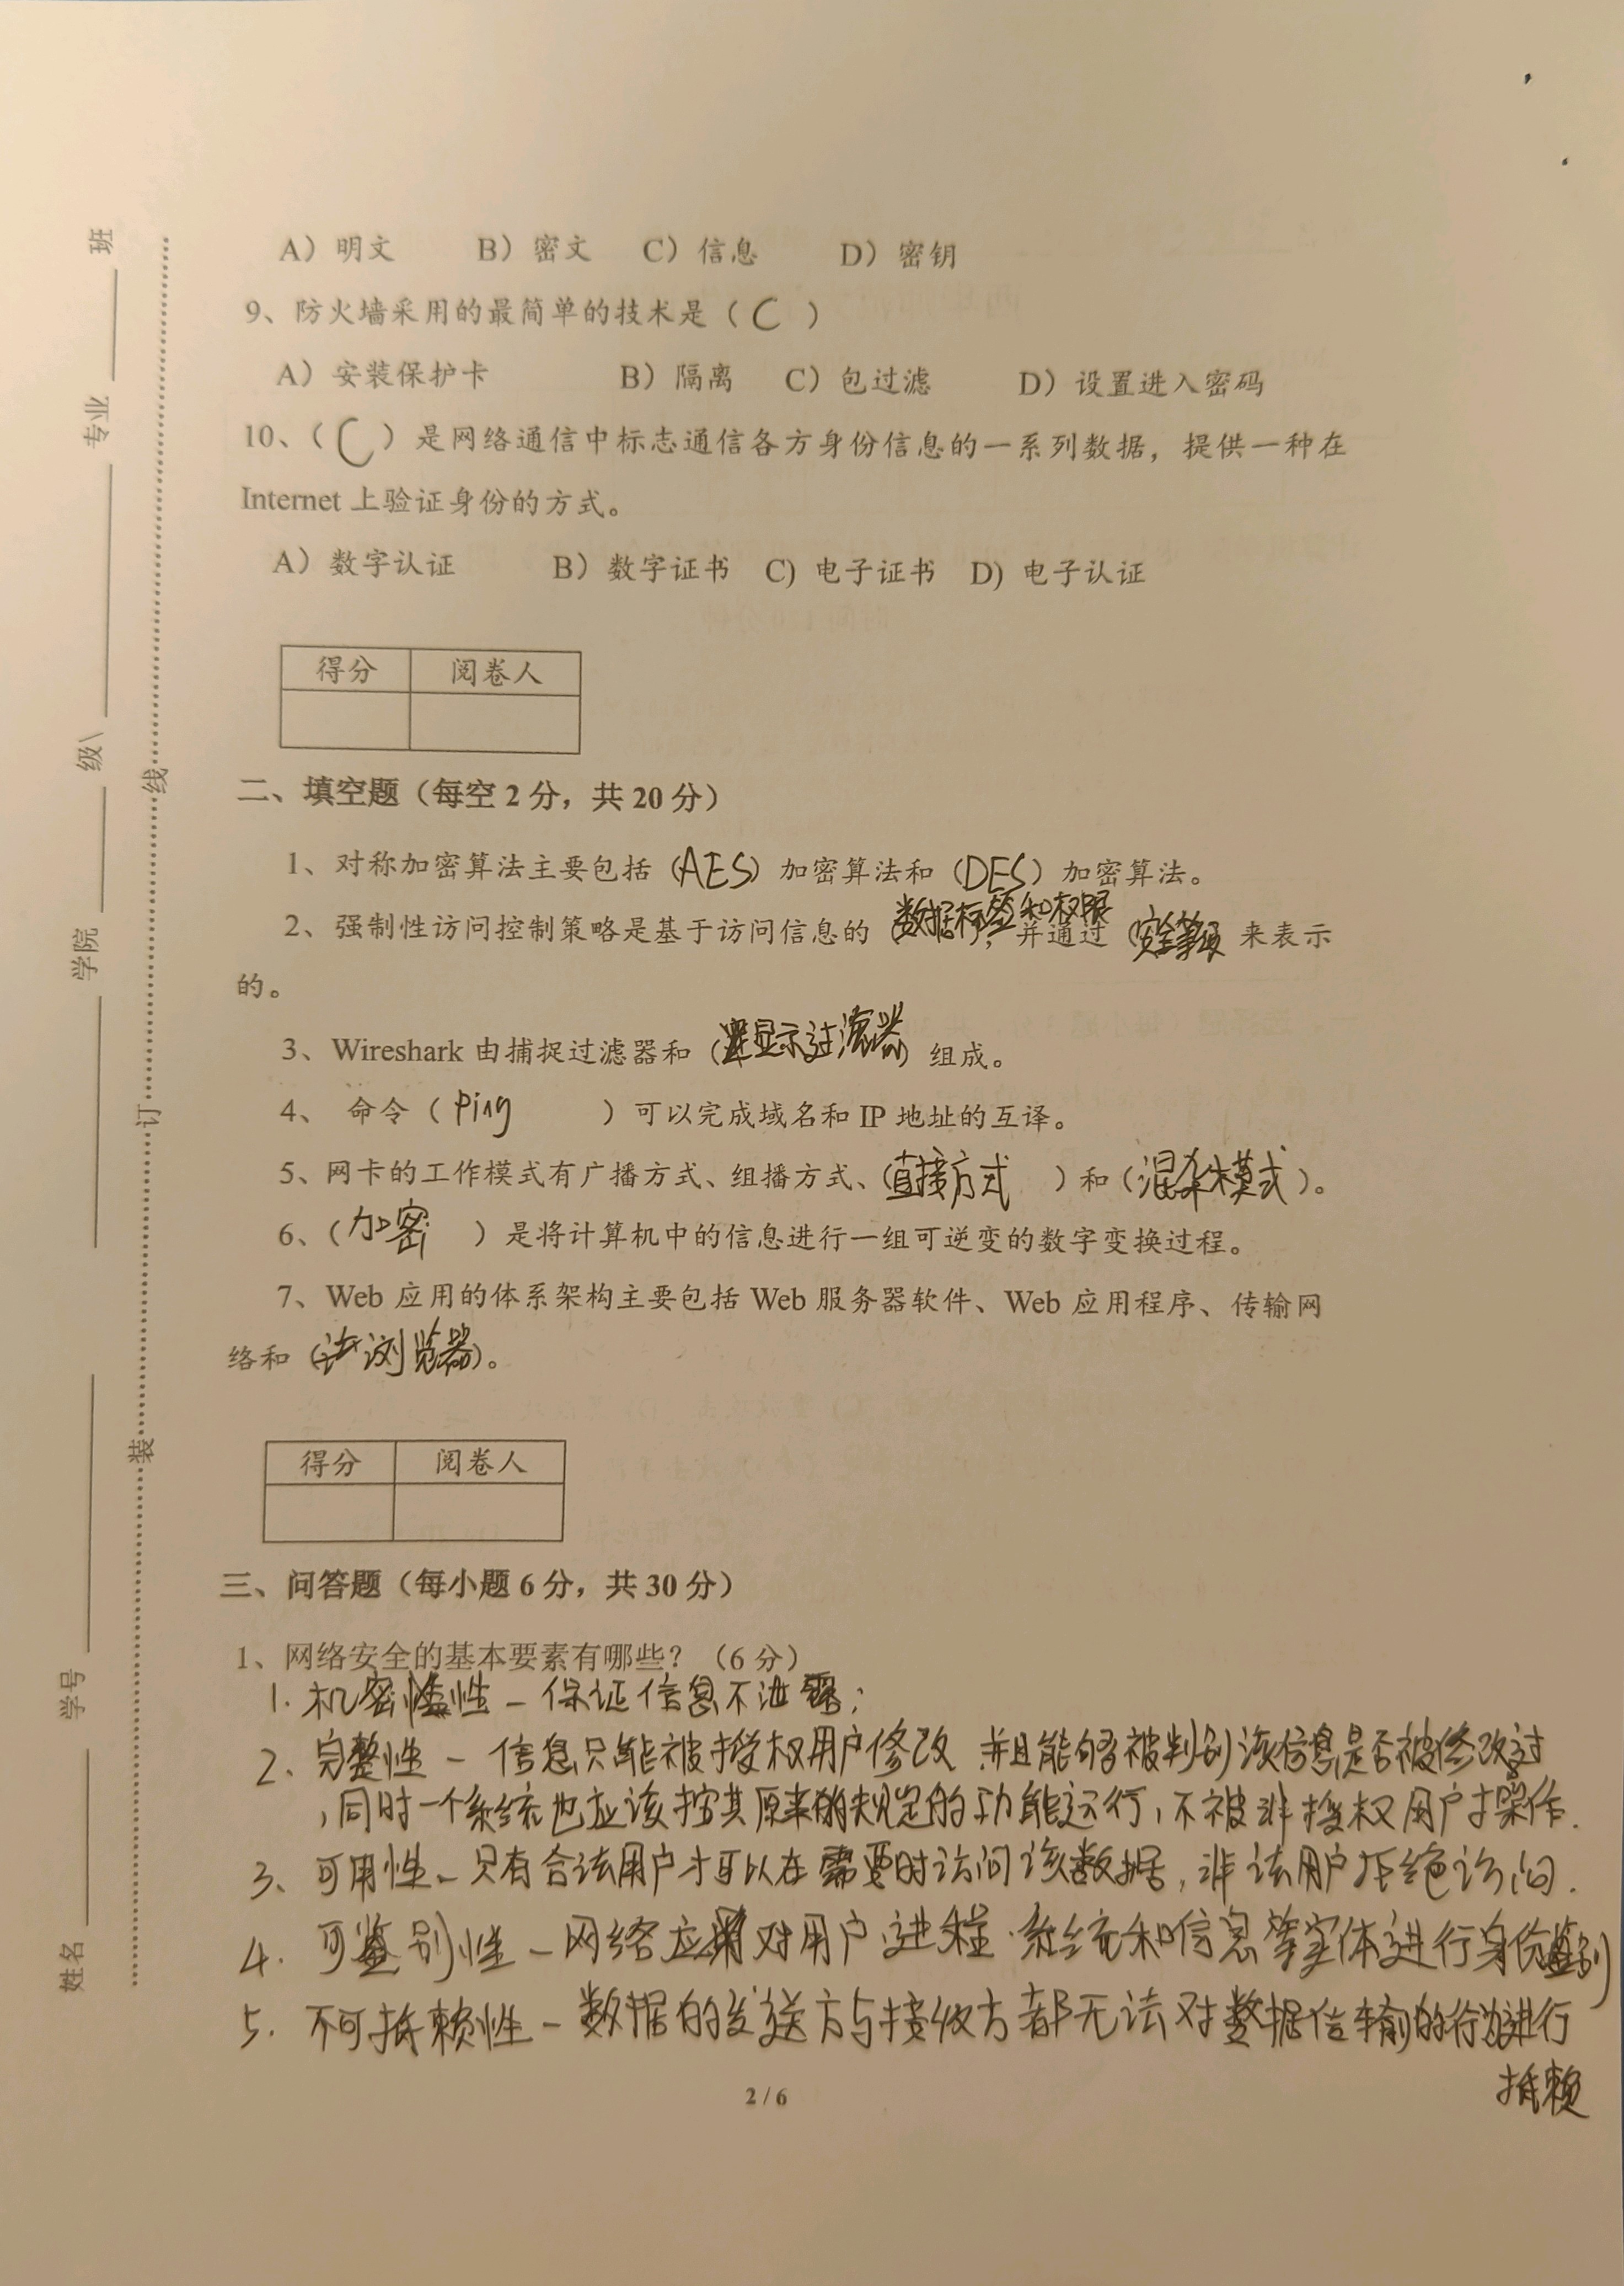 A）明文 B）密文 C）信息 D）密钥
9、防火墙采用的最简单的技术是（ C ）
A）安装保护卡 B）隔离 C）包过滤 D）设置进入密码
10、（ C ）是网络通信中标志通信各方身份信息的一系列数据，提供一种在
Internet 上验证身份的方式。
A）数字认证 B）数字证书 C) 电子证书 D) 电子认证
得分 阅卷人
二、填空题（每空 2 分，共 20 分）
1、对称加密算法主要包括（AES）加密算法和（DES）加密算法。
2、强制性访问控制策略是基于访问信息的（数据标签和权限，并通过（安全等级 来表示
的。
3、Wireshark 由捕捉过滤器和（显示过滤器）组成。
4、 命令（ Ping ）可以完成域名和 IP 地址的互译。
5、网卡的工作模式有广播方式、组播方式、（直接方式 ）和（混杂模式）。
6、（加密 ）是将计算机中的信息进行一组可逆变的数字变换过程。
7、Web 应用的体系架构主要包括 Web 服务器软件、Web 应用程序、传输网
络和（浏览器）。
得分 阅卷人
三、问答题（每小题 6 分，共 30 分）
1、网络安全的基本要素有哪些？（6 分）
1. 机密性 – 保证信息不泄露；
2、完整性 – 信息只能被授权用户修改 并且能够被判别该信息是否被修改过
，同时一个系统也应该按其原来的规定的功能运行，不被非授权用户操作.
3、可用性 – 只有合法用户才可以在需要时访问该数据，非法用户拒绝访问.
4. 可鉴别性 – 网络应对用户、进程、系统和信息等实体进行身份鉴别
5. 不可抵赖性 – 数据的发送方与接收方都无法对数据传输的行为进行
抵赖
2 / 6
姓名 学号 学院 级\ 专业 班
装 订 线